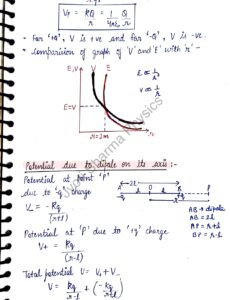 V_P = kQ/r = 1/4πε₀ Q/r
- For '+Q', V is +ve and for '-Q', V is -ve.
• Comparison of graph of 'V' and 'E' with 'r' -
E,V V E
E ∝ 1/r²
V ∝ 1/r
E=V
r=1m
r
Potential due to dipole on its axis :-
Potential at point 'P'
due to -q charge
V_- = -kq/(r+l)
Potential at 'P' due to '+q' charge
V_+ = kq/(r-l)
Total potential V = V_+ + V_-
V = kq/(r-l) + (-kq/(r+l))
A 2l
O B P
-q +q
r
AB → dipole
AB = 2l
AP = r+l
BP = r-l
Jyoti Sharma Physics